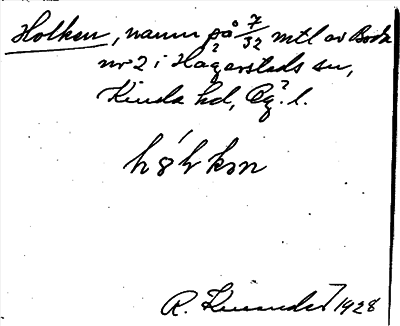 Holken, namn på 7/32 mtl av Boda
nr 2 i Hägerstads sn,
Kinda hd, Ög. l.
hólkən
1928